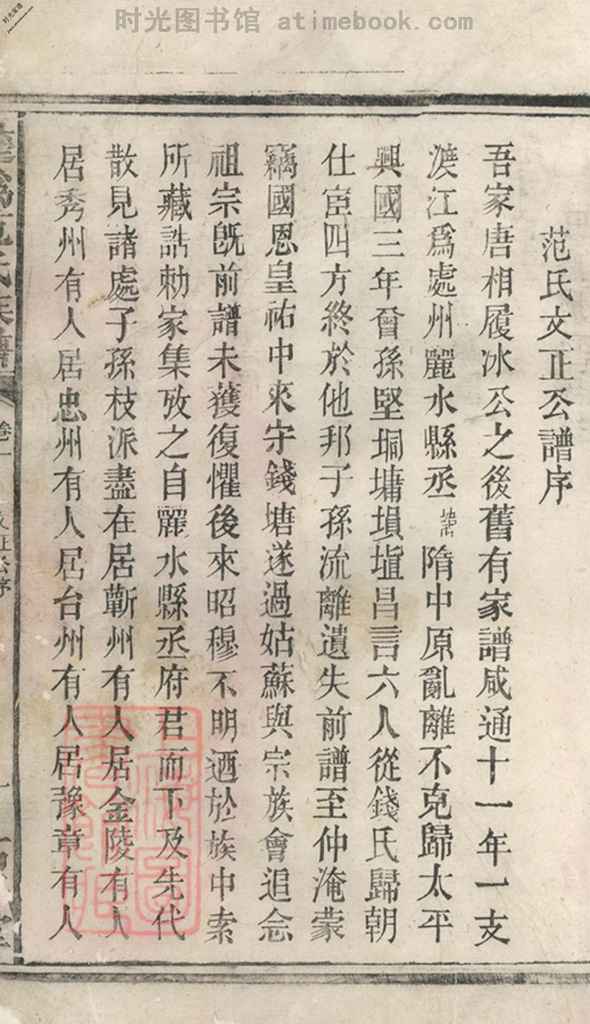 时光图书馆 atimebook.com
范氏文正公譜序
吾家唐相履冰公之後舊有家譜咸通十一年一支
渡江爲處州麗水縣丞隋中原亂離不克歸太平
興國三年曾孫堅坰墉塤埴昌言六人從錢氏歸朝
仕宦四方終於他邦子孫流離遺失前譜至仲淹蒙
竊國恩皇祐中來守錢塘遂過姑蘇與宗族會追念
祖宗旣前譜未獲復懼後來昭穆不明迺於族中索
所藏誥勅家集攷之自麗水縣丞府君而下及先代
散見諸處子孫枝派盡在居蘄州有人居金陵有人
居秀州有人居忠州有人居台州有人居豫章有人
氏族譜
卷一